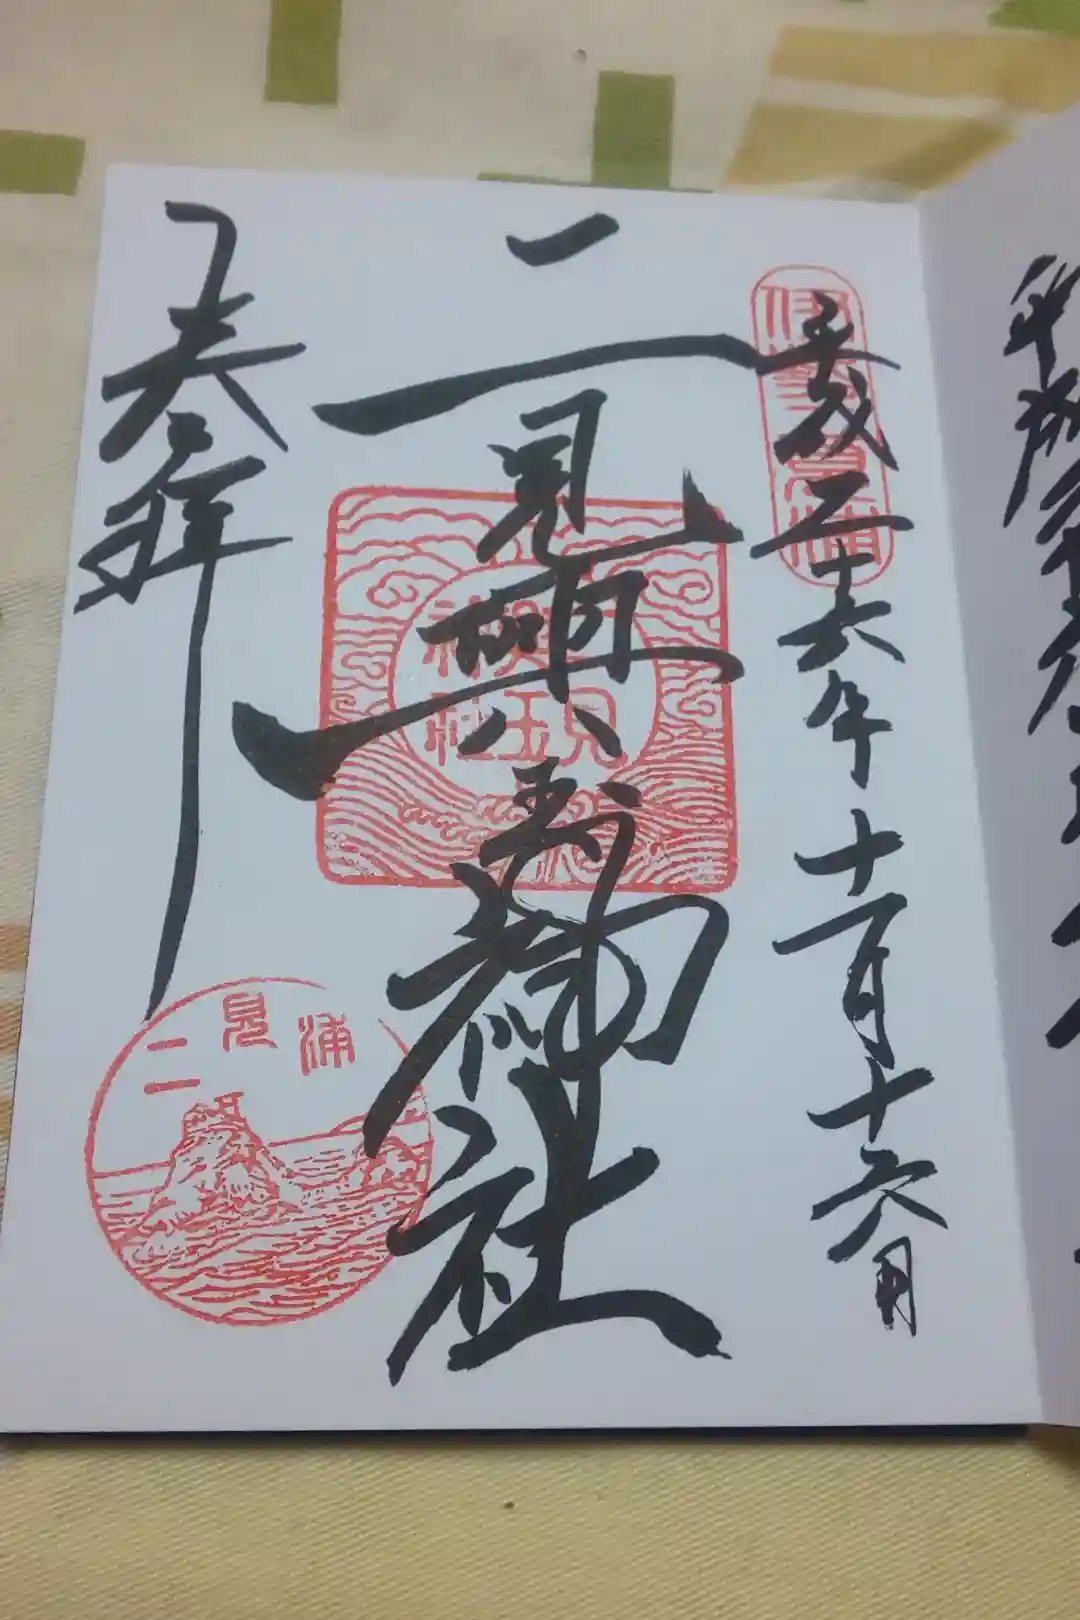 伊勢二見浦
平成二十六年十一月十六日
二見興玉神社
二見興玉神社
奉拝
二見浦